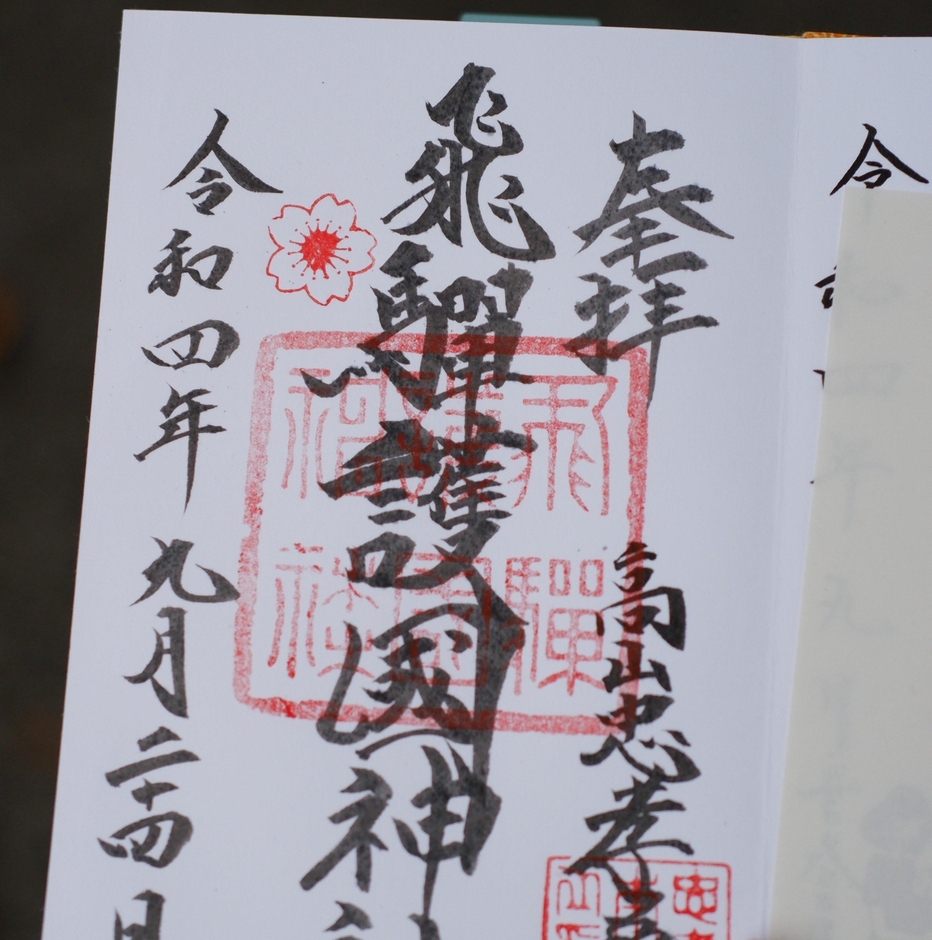 奉拝
高山忠孝
飛騨護國神社
令和四年九月二十四日
飛騨護國神社
令